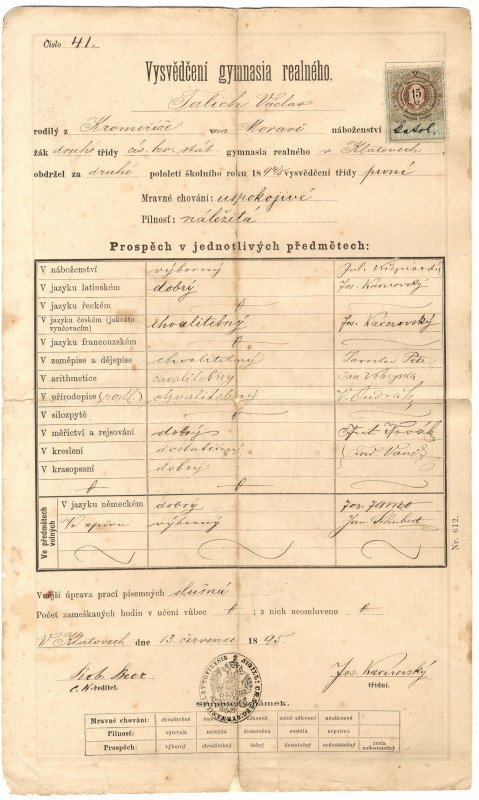 Číslo 41.
Vysvědčení gymnasia realného.
Talich Václav
rodilý z Kroměříže na Moravě náboženství katol.
žák druhé třídy cís. kr. stát. gymnasia realného v Klatovech
obdržel za druhé pololetí školního roku 1894/5 vysvědčení třídy první
Mravné chování: uspokojivé
Pilnost: náležitá
15
Prospěch v jednotlivých předmětech:
V náboženství výborný
V jazyku latinském dobrý Jos. Kacerovský
V jazyku řeckém
V jazyku českém (jakožto vyučovacím) chvalitebný Jos. Kacerovský
V jazyku francouzském
V zeměpise a dějepise chvalitebný Jaroslav Petr
V arithmetice chvalitebný Jan
V přírodopise (rostl.) chvalitebný
V silozpytě
V měřictví a rejsování dobrý Novák
V kreslení dostatečný
V krasopsaní dobrý
Ve předmětech volných
V jazyku německém dobrý
Ve zpěvu výborný Jan Schubert
Nr. 612.
Vnější úprava prací písemných slušná
Počet zameškaných hodin v učení vůbec ; z nich neomluveno
V Klatovech dne 13. července 1895
c. k. ředitel.
Jos. Kacerovský
třídní.
Stupnice známek.
Mravné chování: chvalitebné zákonné méně zákonné nezákonné
Pilnost: vytrvalá náležitá dostatečná nestálá nepatrná
Prospěch: výborný chvalitebný dobrý dostatečný nedostatečný zcela nedostatečný